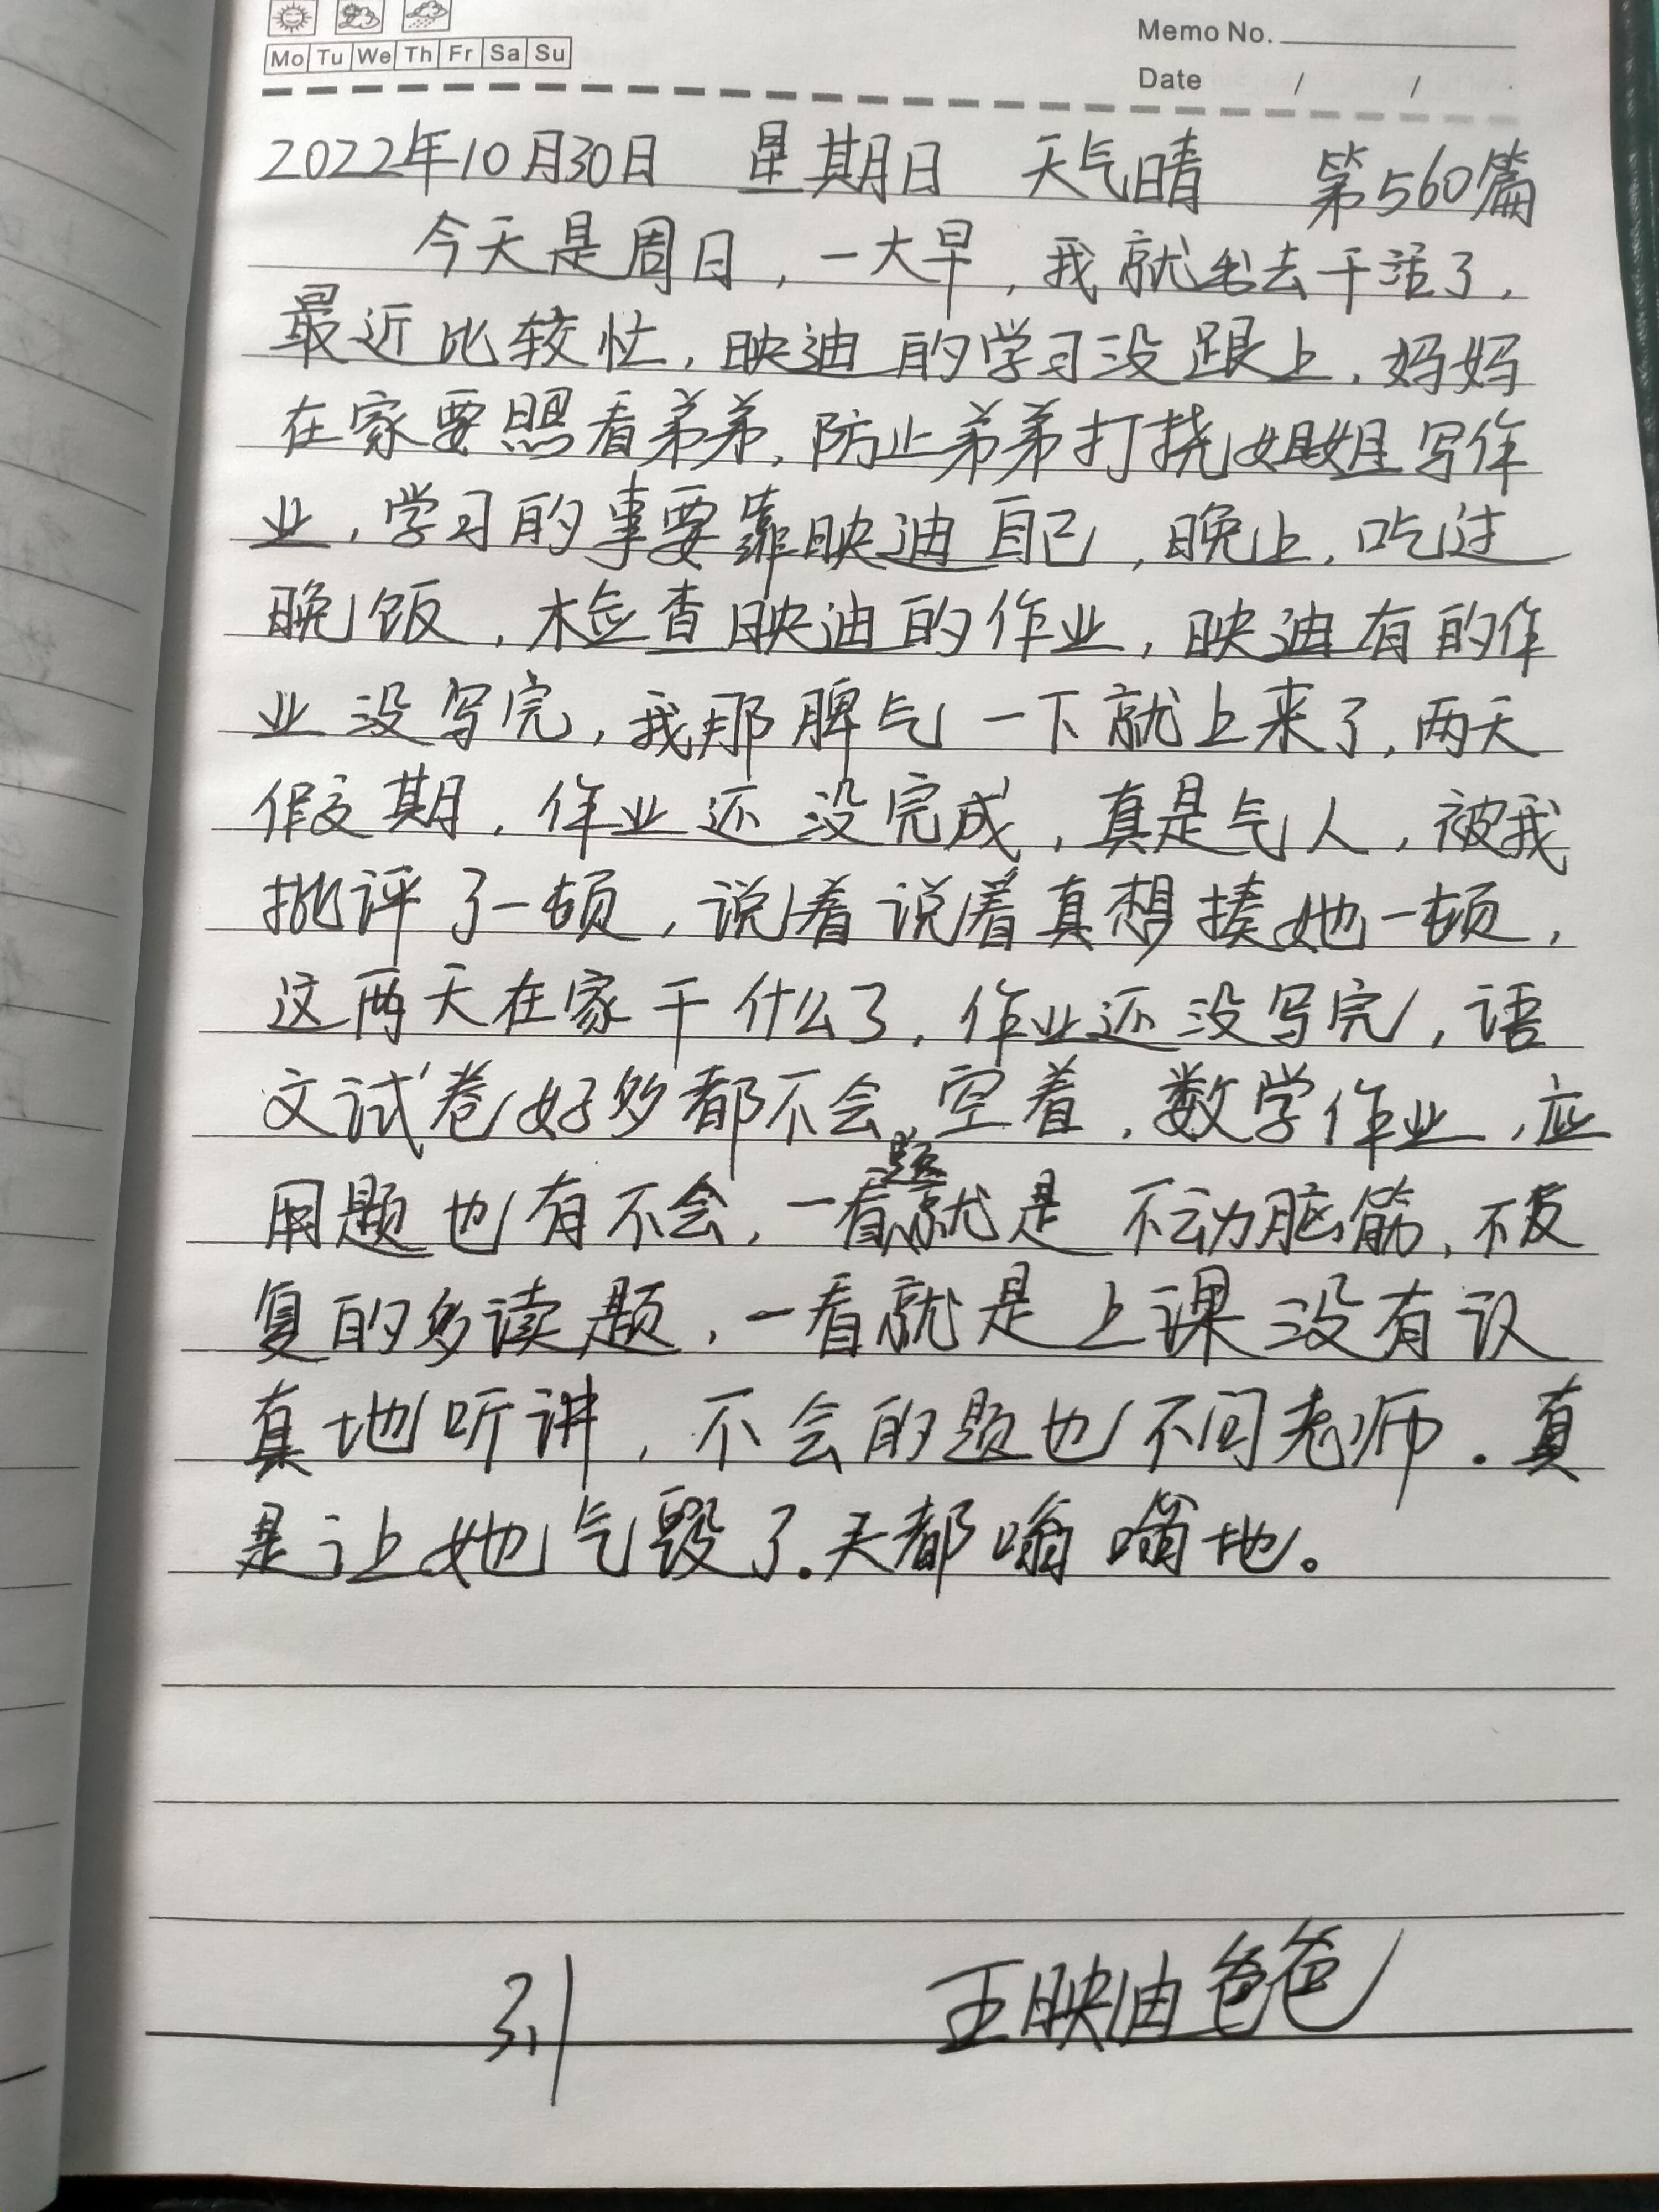 Mo Tu We Th Fr Sa Su
Memo No.
Date / /
2022年10月30日 星期日 天气晴 第560篇
今天是周日，一大早，我就出去干活了，
最近比较忙，映迪的学习没跟上，妈妈
在家要照看弟弟，防止弟弟打挠姐姐写作
业，学习的事要靠映迪自己，晚上，吃过
晚饭，检查映迪的作业，映迪有的作
业没写完，我那脾气一下就上来了，两天
假期，作业还没完成，真是气人，被我
批评了一顿，说着说着真想揍她一顿，
这两天在家干什么了，作业还没写完，语
文试卷好多都不会，空着，数学作业，应
用题也有不会，一看题就是不动脑筋，不反
复的多读题，一看就是上课没有认
真地听讲，不会的题也不问老师。真
是让她气毁了。天都嗡嗡地。
31 王映迪爸爸